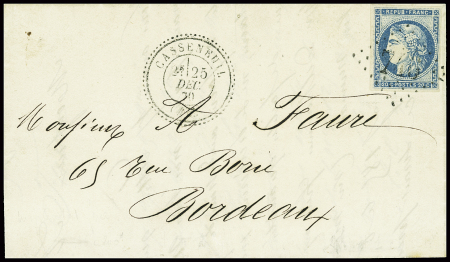 REPUB. FRANC.
20 C. POSTES 20 C.
CASSENEUIL
25
DEC.
70
Monsieur A Faure
65 Rue Borie
Bordeaux